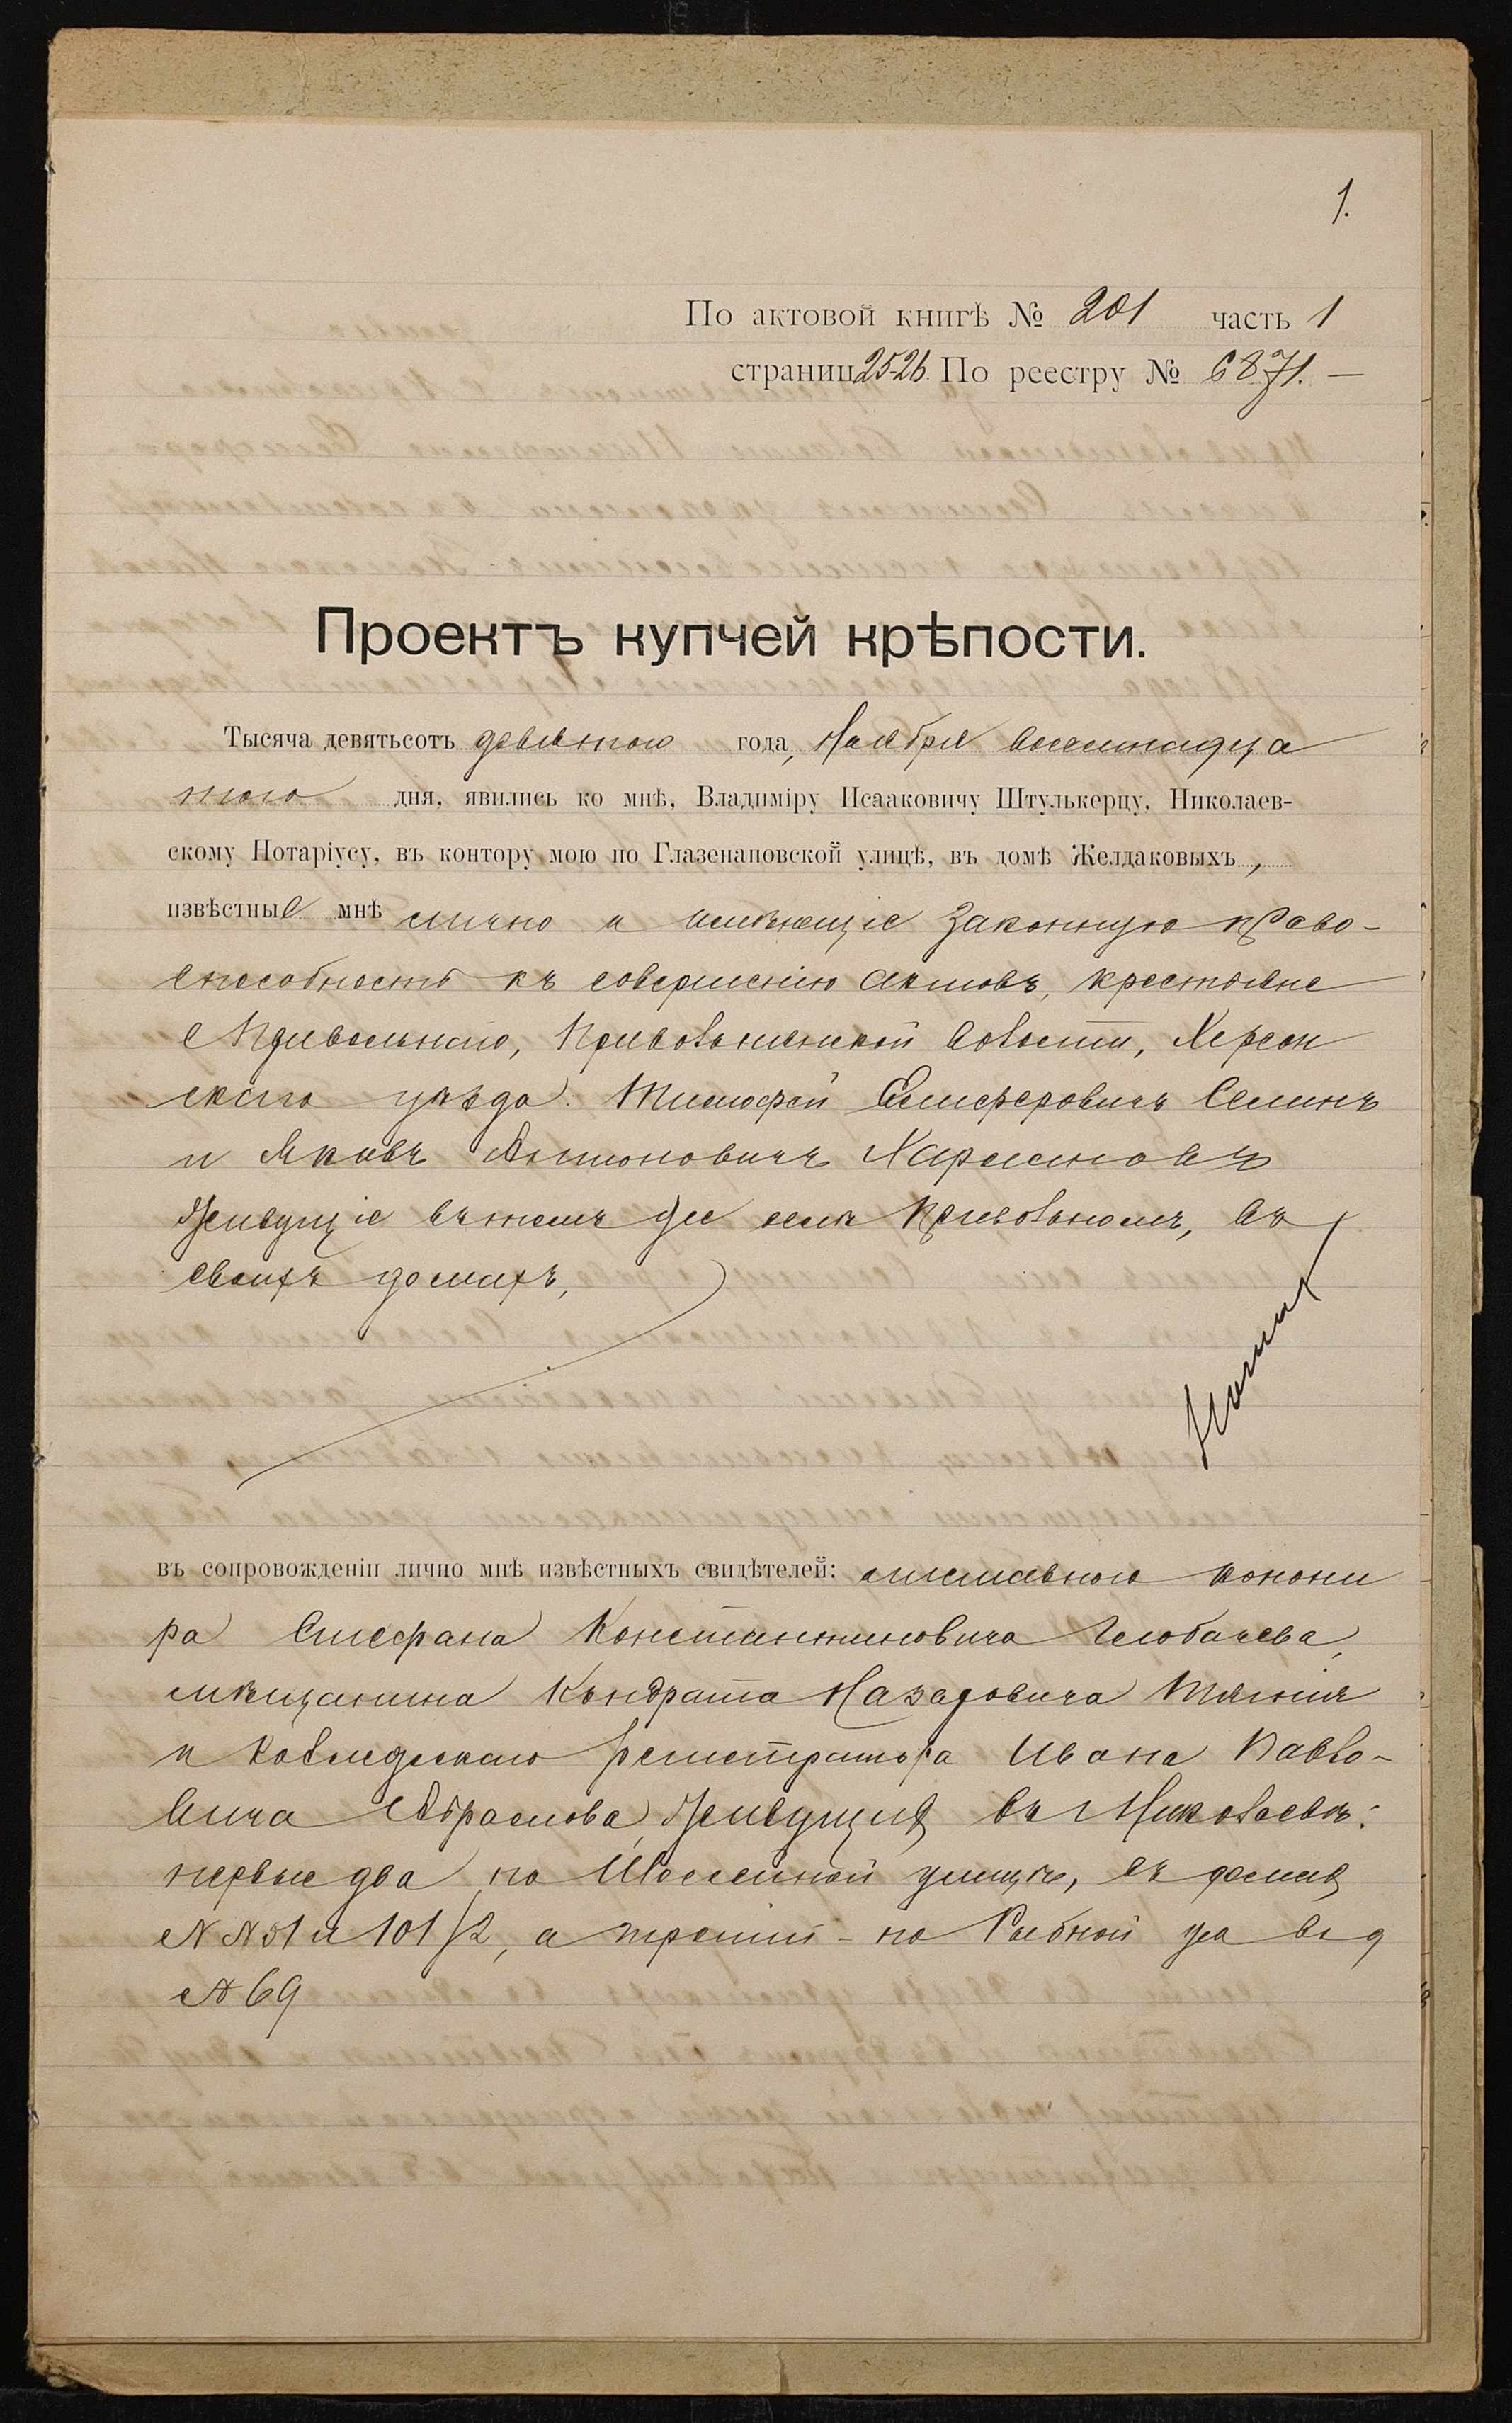 1.
По актовой книгѣ № 201 часть 1
страниц 25-26. По реестру № 6871. —
Проектъ купчей крѣпости.
Тысяча девятьсотъ девятаго года, Ноября восемнадца
таго дня, явились ко мнѣ, Владиміру Исааковичу Штулькерцу, Николаев-
скому Нотаріусу, въ контору мою по Глазенаповской улицѣ, въ домѣ Желдаковыхъ,
извѣстные мнѣ лично и имѣющіе законную право-
способность къ совершенію актовъ, крестьяне
с Привольнаго, Привольнянской волости, Херсон
скаго уѣзда Тимофей Елисферовичъ Семинъ
и Яковъ Антоновичъ
живущіе въ томъ же селѣ Привольномъ, въ
своихъ домахъ,
въ сопровожденіи лично мнѣ извѣстныхъ свидѣтелей: отставного канони
ра Стефана Константиновича
мѣщанина Кондрата Назаровича
и коллежскаго регистратора Ивана Павло-
вича Абрамова, живущихъ въ Николаевѣ:
первые два по улицѣ, въ домахъ
№ № 51 и 101/2, а третій - по Рыбной ул въ д
№ 69